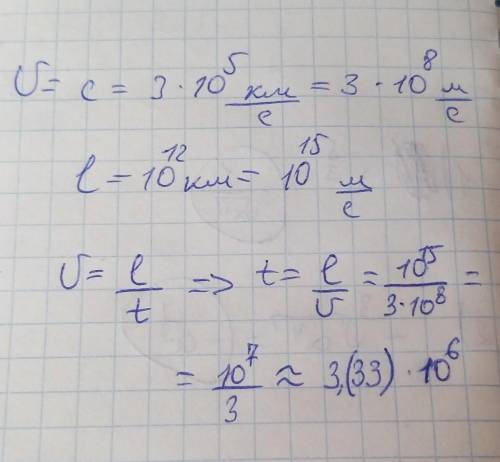 υ = c = 3 · 10⁵ км/с = 3 · 10⁸ м/с
ℓ = 10¹² км = 10¹⁵ м/с
υ = ℓ/t => t = ℓ/υ = 10¹⁵/3·10⁸ =
= 10⁷/3 ≈ 3,(33) · 10⁶